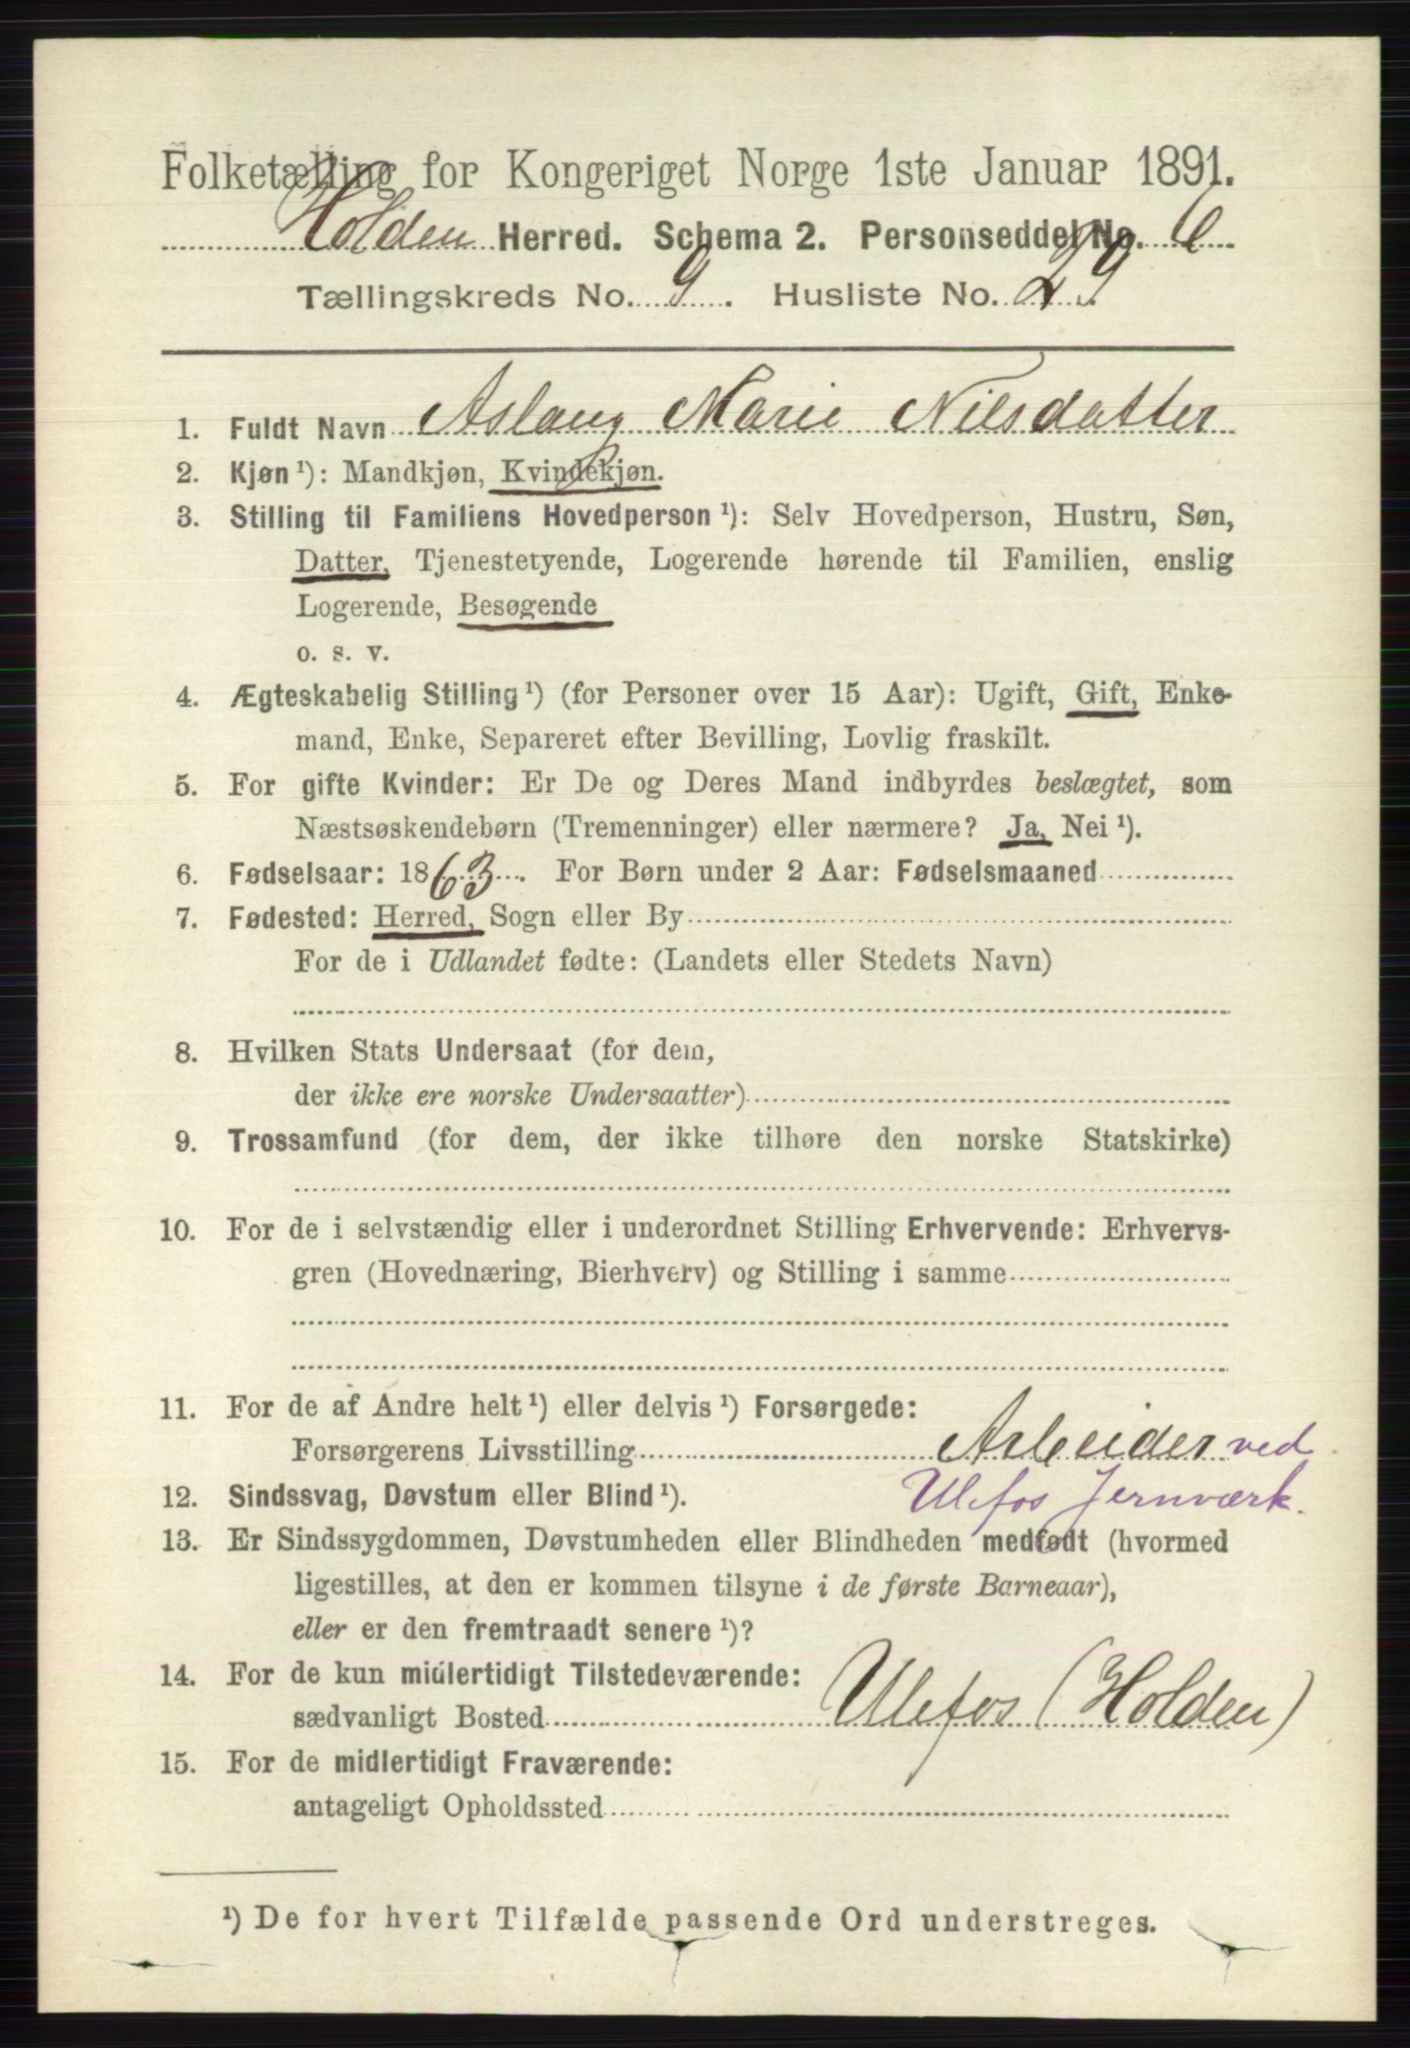 Folketælling for Kongeriget Norge 1ste Januar 1891.
Holden Herred. Schema 2. Personseddel No. 6
Tællingskreds No. 9. Husliste No. 29.
1. Fuldt Navn Aslaug Marie Nilsdatter
2. Kjøn ¹): Mandkjøn, Kvindekjøn.
3. Stilling til Familiens Hovedperson ¹): Selv Hovedperson, Hustru, Søn,
Datter, Tjenestetyende, Logerende hørende til Familien, enslig
Logerende, Besøgende
o. s. v.
4. Ægteskabelig Stilling ¹) (for Personer over 15 Aar): Ugift, Gift, Enke-
mand, Enke, Separeret efter Bevilling, Lovlig fraskilt.
5. For gifte Kvinder: Er De og Deres Mand indbyrdes beslægtet, som
Næstsøskendebørn (Tremenninger) eller nærmere? Ja, Nei ¹).
6. Fødselsaar: 1863. For Børn under 2 Aar: Fødselsmaaned
7. Fødested: Herred, Sogn eller By
For de i Udlandet fødte: (Landets eller Stedets Navn)
8. Hvilken Stats Undersaat (for dem,
der ikke ere norske Undersaatter)
9. Trossamfund (for dem, der ikke tilhøre den norske Statskirke)
10. For de i selvstændig eller i underordnet Stilling Erhvervende: Erhvervs-
gren (Hovednæring, Bierhverv) og Stilling i samme
11. For de af Andre helt ¹) eller delvis ¹) Forsørgede:
Forsørgerens Livsstilling Arbeider ved
Ulefos Jernværk.
12. Sindssvag, Døvstum eller Blind ¹).
13. Er Sindssygdommen, Døvstumheden eller Blindheden medfødt (hvormed
ligestilles, at den er kommen tilsyne i de første Barneaar),
eller er den fremtraadt senere ¹)?
14. For de kun midlertidigt Tilstedeværende:
sædvanligt Bosted Ulefos (Holden)
15. For de midlertidigt Fraværende:
antageligt Opholdssted
¹) De for hvert Tilfælde passende Ord understreges.